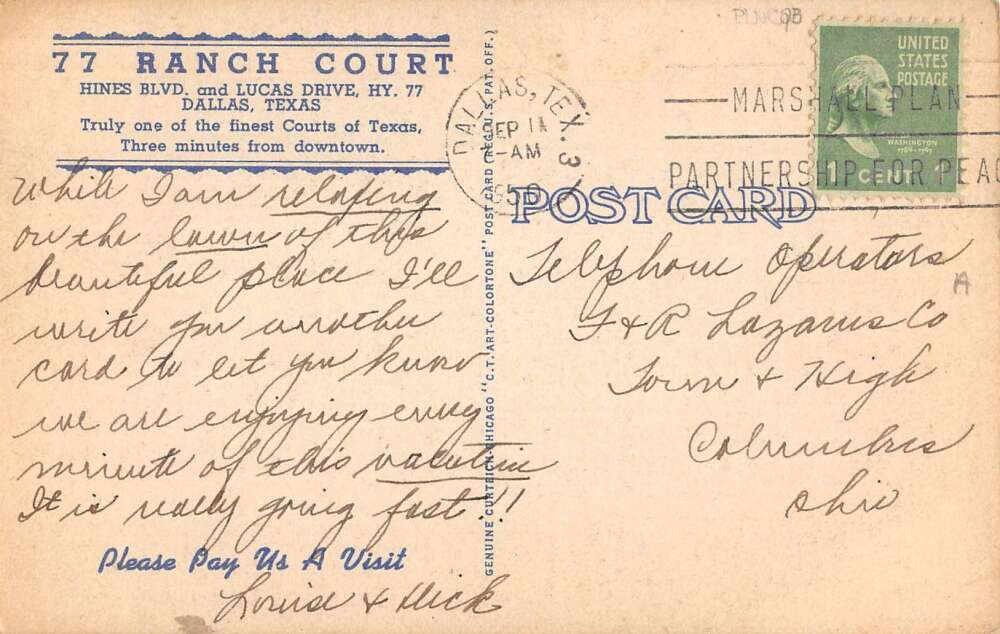 77 RANCH COURT
HINES BLVD. and LUCAS DRIVE, HY. 77
DALLAS, TEXAS
Truly one of the finest Courts of Texas,
Three minutes from downtown.
While I am relaxing
on the lawn of this
beautiful place I'll
write you another
card to let you know
we are enjoying every
minute of this vacation
It is really going fast!!
Please Pay Us A Visit
Louise & Dick
GENUINE CURTEICH-CHICAGO "C.T. ART-COLORTONE" POST CARD (REG. U.S. PAT. OFF.)
DALLAS, TEX. 3
SEP 11
-AM
1950
MARSHALL PLAN
PARTNERSHIP FOR PEAC
UNITED
STATES
POSTAGE
WASHINGTON
1789-1797
1 CENT 1
POST CARD
Telephone Operators
F & R Lazarus Co
Town & High
Columbus
Ohio
A